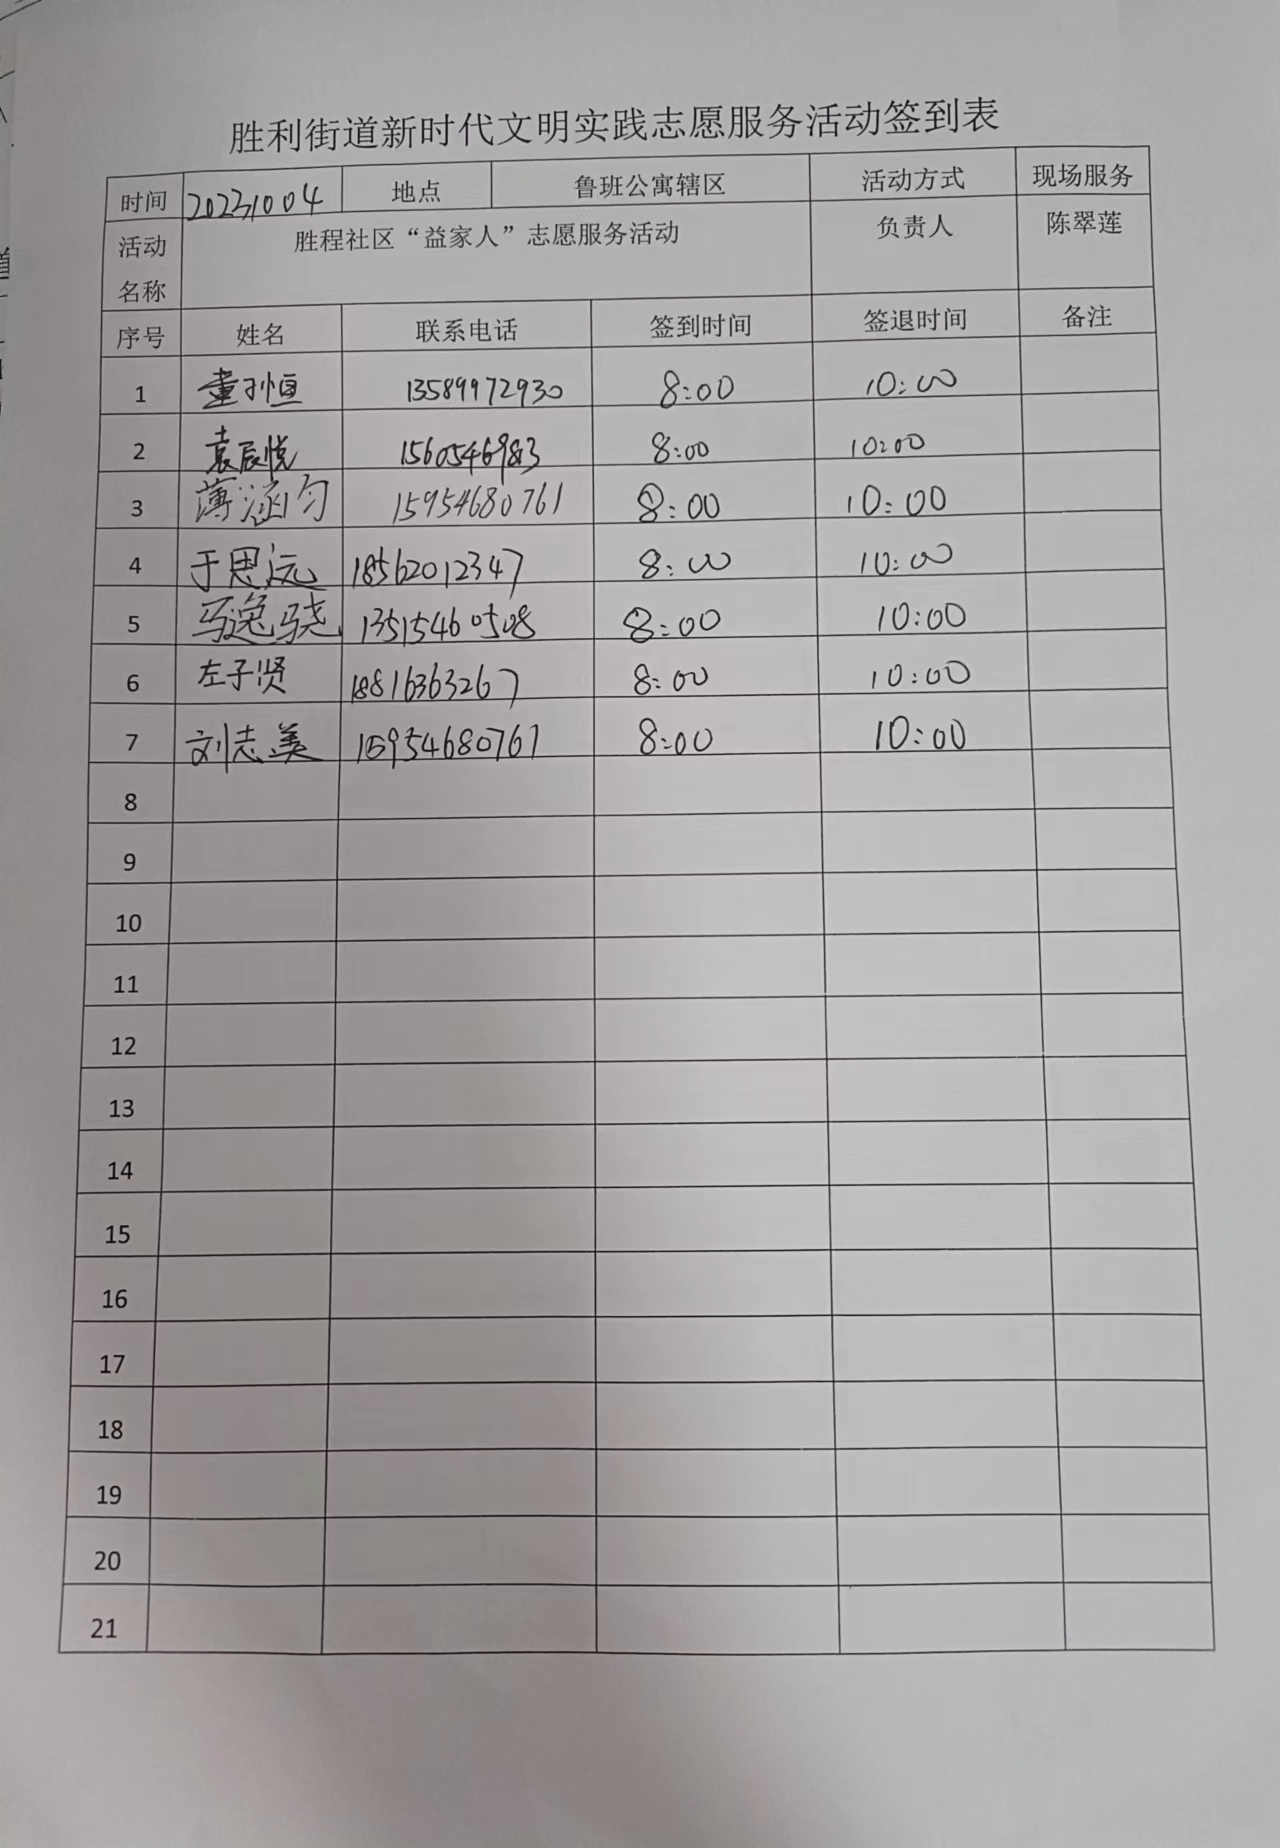 胜利街道新时代文明实践志愿服务活动签到表
时间 20231004 地点 鲁班公寓辖区 活动方式 现场服务
活动名称 胜程社区“益家人”志愿服务活动 负责人 陈翠莲
序号 姓名 联系电话 签到时间 签退时间 备注
1 13589972930 8:00 10:00
2 袁辰悦 8:00 10:00
3 薄涵匀 15954680761 8:00 10:00
4 于思远 18562012347 8:00 10:00
5 马逸骁 13515460508 8:00 10:00
6 左子贤 18816363267 8:00 10:00
7 刘志美 15954680761 8:00 10:00
8
9
10
11
12
13
14
15
16
17
18
19
20
21